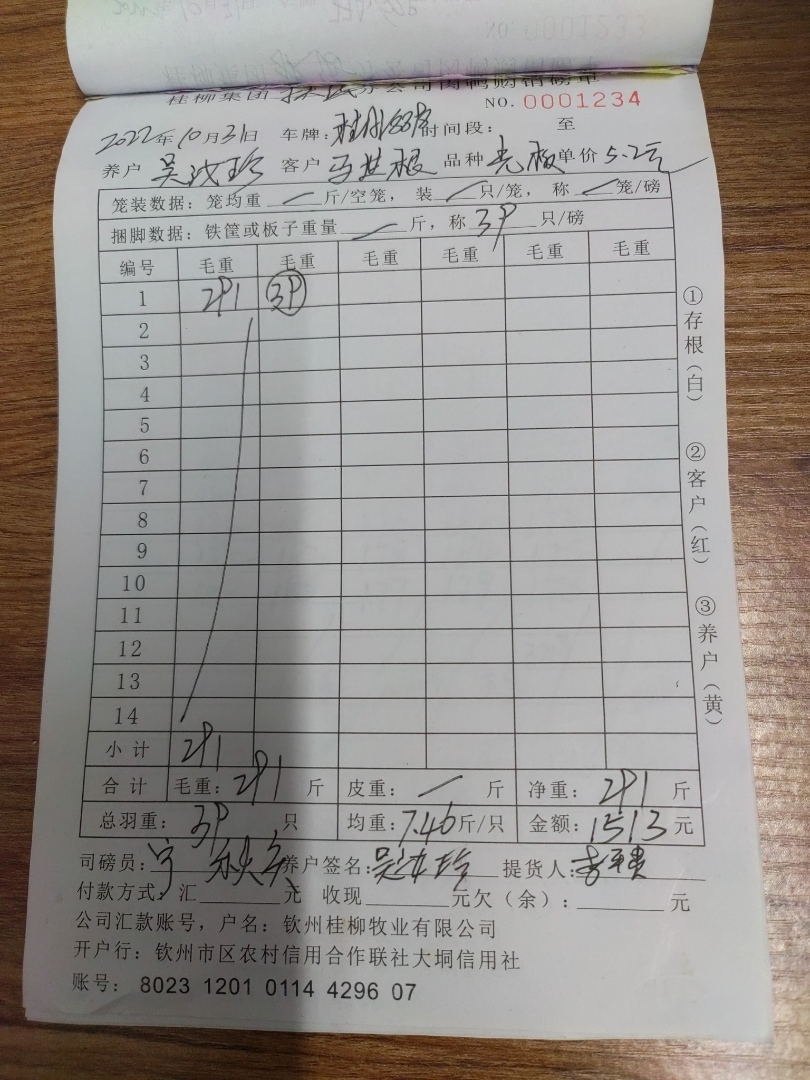 NO. 0001233
桂柳集团 分公司肉鸭购销磅单
NO. 0001234
2022年10月31日 车牌: 桂 时间段: 至
养户 吴汝珍 客户 马世根 品种 光板 单价 5.2元
笼装数据: 笼均重 — 斤/空笼, 装 — 只/笼, 称 — 笼/磅
捆脚数据: 铁筐或板子重量 — 斤, 称 39 只/磅
编号 毛重 毛重 毛重 毛重 毛重 毛重
1 291 39
2
3
4
5
6
7
8
9
10
11
12
13
14
小计 291
合计 毛重: 291 斤 皮重: — 斤 净重: 291 斤
总羽重: 39 只 均重: 7.46 斤/只 金额: 1513 元
司磅员: 养户签名: 吴汝珍 提货人:
付款方式: 汇 元 收现 元欠(余): 元
公司汇款账号, 户名: 钦州桂柳牧业有限公司
开户行: 钦州市区农村信用合作联社大垌信用社
账号: 8023 1201 0114 4296 07
①存根(白)
②客户(红)
③养户(黄)